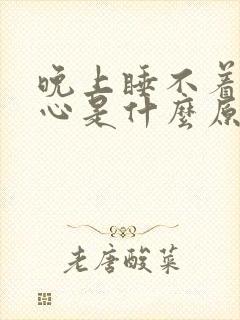 晚上睡不着
心是什麼原
老唐酸菜